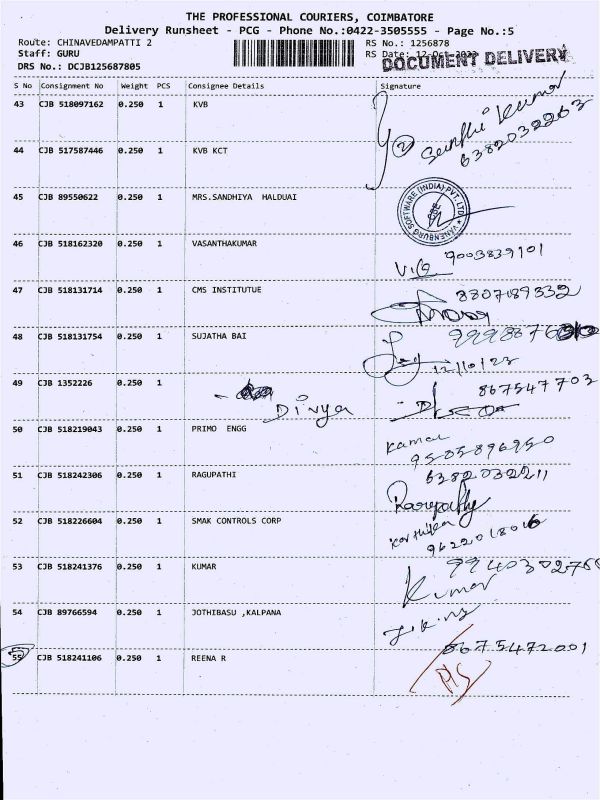 THE PROFESSIONAL COURIERS, COIMBATORE
Delivery Runsheet - PCG - Phone No.:0422-3505555 - Page No.:5
Route: CHINAVEDAMPATTI 2
RS No.: 1256878
Staff: GURU
RS Date: 12-Oct-2023
DOCUMENT DELIVERY
DRS No.: DCJB125687805
S No Consignment No Weight PCS Consignee Details Signature
43 CJB 518097162 0.250 1 KVB
Kumar
6382032263
44 CJB 517587446 0.250 1 KVB KCT
45 CJB 89550622 0.250 1 MRS.SANDHIYA HALDUAI
VANENBURG SOFTWARE (INDIA) PVT. LTD.
CBE
46 CJB 518162320 0.250 1 VASANTHAKUMAR
9003839101
47 CJB 518131714 0.250 1 CMS INSTITUTUE
8807189332
48 CJB 518131754 0.250 1 SUJATHA BAI
12/10/23
49 CJB 1352226 0.250 1 - Divya
867547703
50 CJB 518219043 0.250 1 PRIMO ENGG
Kamal
9505896950
51 CJB 518242306 0.250 1 RAGUPATHI
6382032211
52 CJB 518226604 0.250 1 SMAK CONTROLS CORP
53 CJB 518241376 0.250 1 KUMAR
Kumar
54 CJB 89766594 0.250 1 JOTHIBASU ,KALPANA
55 CJB 518241106 0.250 1 REENA R
8675472001